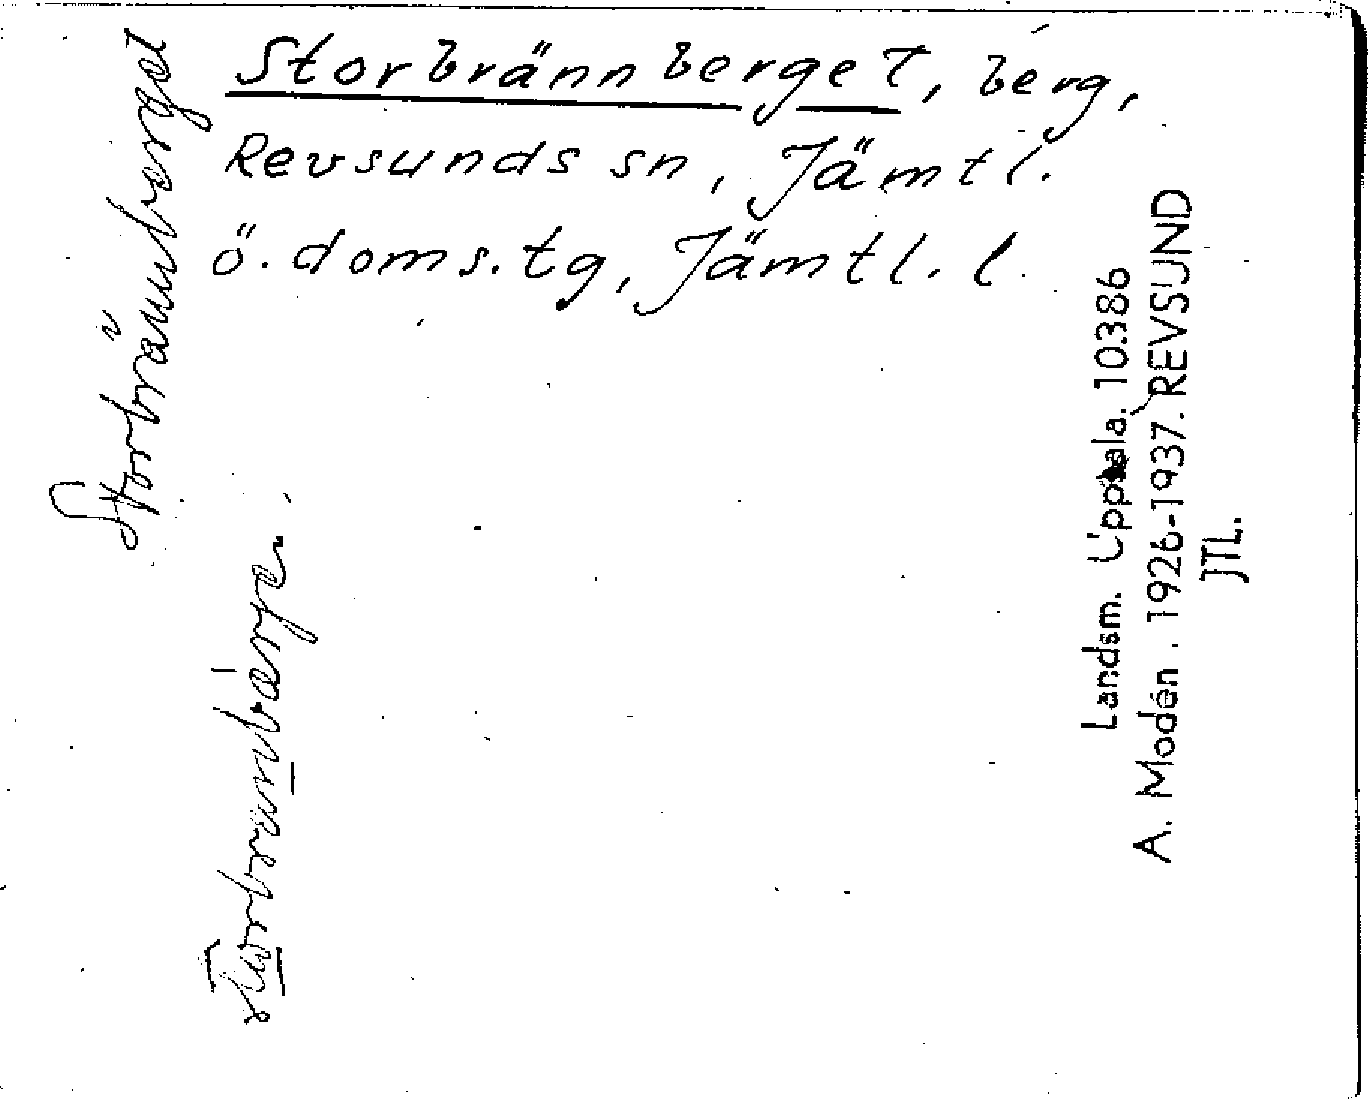 Storbrännberget, berg,
Revsunds sn, Jämtl.
ö. doms.tg, Jämtl. l.
Storbrännberget
Landsm. Uppsala. 10386
A. Modén. 1926-1937. REVSUND
JTL.